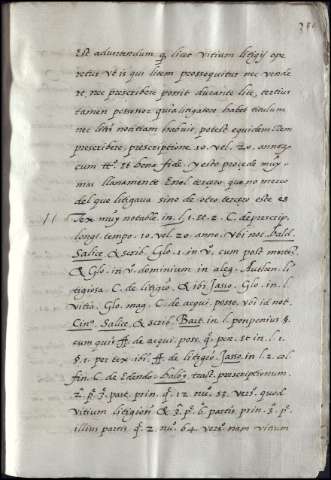 Est aduertendum q licet vitium litigij ope
retur vt is qui litem prosequitur nec vende
re nec prescribere possit durante lite, tertius
tamen possessor qui a litigatore habet titulum
nec litis notitiam habuit, potest equidem rem
prescribere, prescriptione 10. vel. 20. annorum
cum tt.º et bona fide. y esto procede muy
mas llanamente En el tercero que no merco
del que litigaua sino de otro tercero este es
Tex. muy notable. in. l. 1. et. 2. C. de prescrip.
longi. tempo. 10. vel. 20. anno. vbi not. bald.
Salice & scrib. Glo. 1. in v. cum post
& Glo. in v. dominium in aleg. Authen. li
tigiosa. C. de litigio. & ibi Jaso. Glo. in. l.
vitia. Glo. mag. C. de acqui. posse. vbi id not.
Cin. Salice, & scrib. Bart. in. l. pomponius §.
cum qui ff. de acqui. poss. q. pen. et in. l. 1.
§. 1. per tex. ibi. ff. de litigio. Jaso. in. l. 2. col.
fin. C. de Edendo. Balb. tract. prescriptionum.
2. p. 3. part. prin. q. 12. nu. 53. vers. quod
vitium litigiosi & 3. p. 6. partis prin. 3. p.
illius partis q. 2. nu. 64 vers. nam vitium